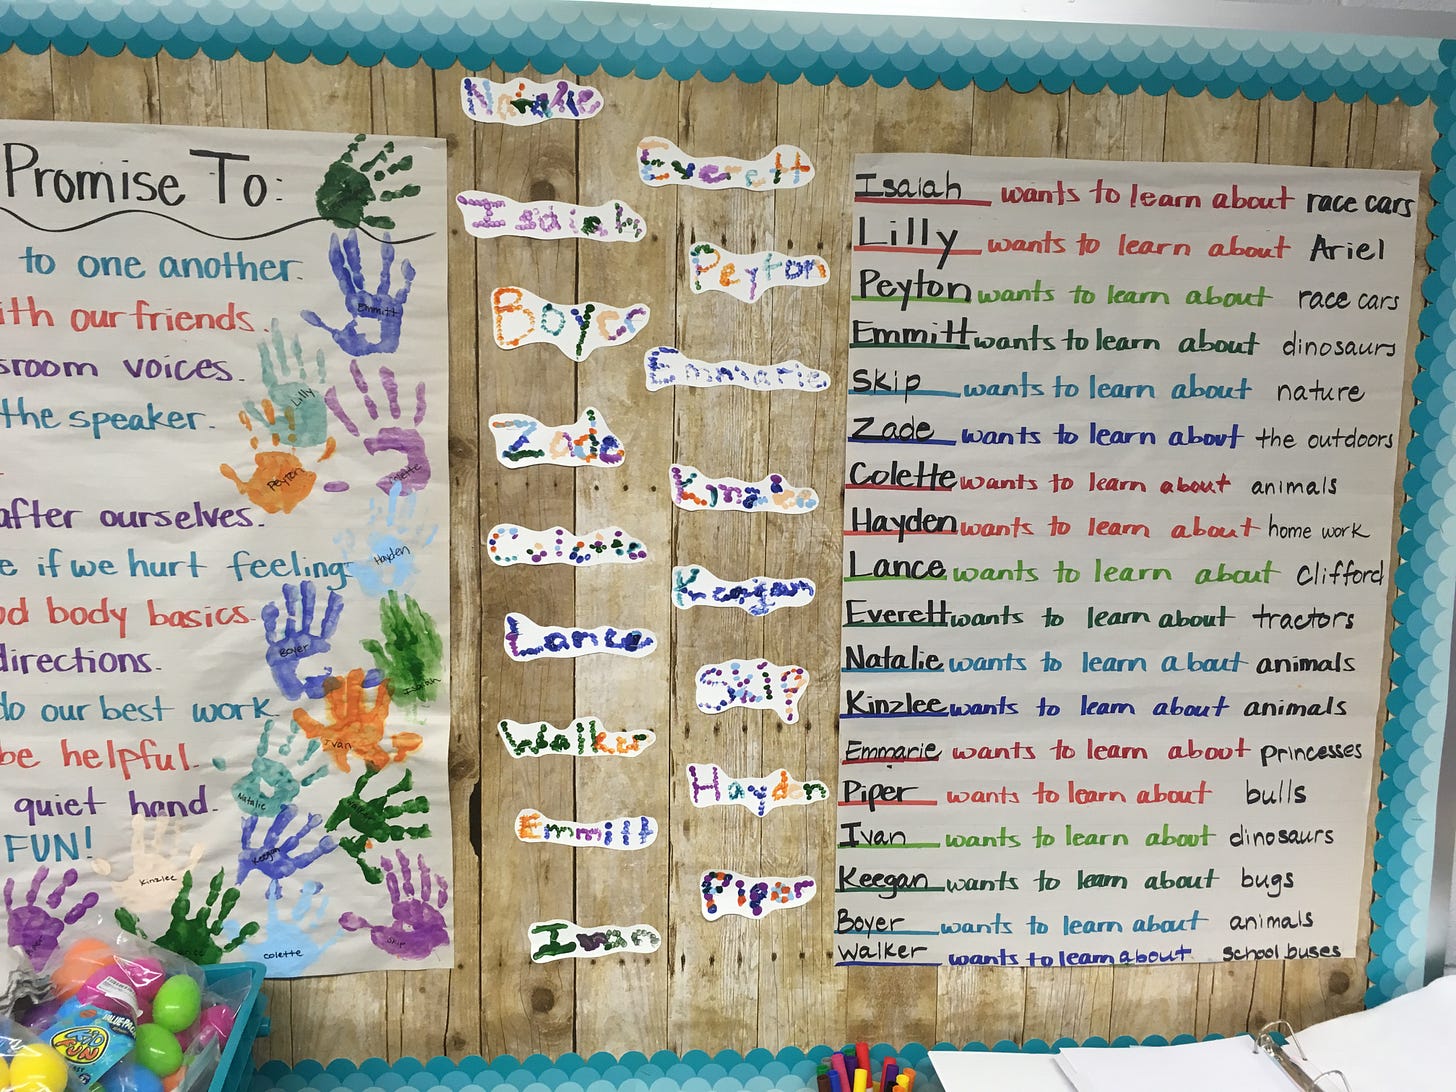 Promise To:
to one another.
ith our friends.
sroom voices.
the speaker.
after ourselves.
e if we hurt feelings
od body basics.
directions.
do our best work
be helpful.
quiet hand.
FUN!
Emmitt
Lilly
Peyton
Hayden
Boyer
Isaiah
Ivan
Natalie
Keegan
Kinzlee
Skip
colette
Natalie
Everett
Isaiah
Peyton
Boyer
Emmarie
Zade
Kinzlee
Colette
Keegan
Lance
Skip
Walker
Hayden
Emmitt
Piper
Ivan
Isaiah wants to learn about race cars
Lilly wants to learn about Ariel
Peyton wants to learn about race cars
Emmitt wants to learn about dinosaurs
Skip wants to learn about nature
Zade wants to learn about the outdoors
Colette wants to learn about animals
Hayden wants to learn about home work
Lance wants to learn about Clifford
Everett wants to learn about tractors
Natalie wants to learn about animals
Kinzlee wants to learn about animals
Emmarie wants to learn about princesses
Piper wants to learn about bulls
Ivan wants to learn about dinosaurs
Keegan wants to learn about bugs
Boyer wants to learn about animals
Walker wants to learn about school buses